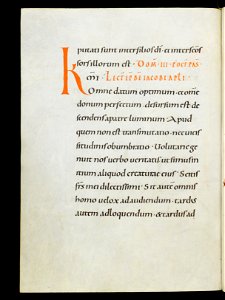 putati sunt inter filios dī · et inter scōs
sors illorum est · Dom̄ · iii · post pas
cm̄ · Lectio bī iacobi apli ·
Omne datum optimum · et om̄e
donum perfectum · desursum est de
scendens a patre luminum · Apud
quem non est transmutatio · nec uicis
situdinis obumbratio · Voluntarie ge
nuit nos uerbo ueritatis · ut simus in
itium aliquod creaturae eius · Scitis
frs̄ mei dilectissimi · Sit autē omnis
homo uelox ad audiendum · tardus
autem ad loquendum · et tardus ad